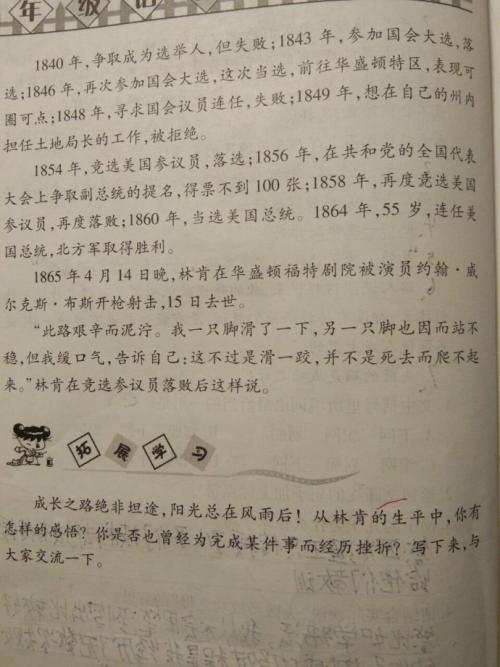 年 级 语
1840 年，争取成为选举人，但失败；1843 年，参加国会大选，落
选；1846 年，再次参加国会大选，这次当选，前往华盛顿特区，表现可
圈可点；1848 年，寻求国会议员连任，失败；1849 年，想在自己的州内
担任土地局长的工作，被拒绝。
1854 年，竞选美国参议员，落选；1856 年，在共和党的全国代表
大会上争取副总统的提名，得票不到 100 张；1858 年，再度竞选美国
参议员，再度落败；1860 年，当选美国总统。1864 年，55 岁，连任美
国总统，北方军取得胜利。
1865 年 4 月 14 日晚，林肯在华盛顿福特剧院被演员约翰·威
尔克斯·布斯开枪射击，15 日去世。
“此路艰辛而泥泞。我一只脚滑了一下，另一只脚也因而站不
稳，但我缓口气，告诉自己：这不过是滑一跤，并不是死去而爬不起
来。”林肯在竞选参议员落败后这样说。
拓展学习
成长之路绝非坦途，阳光总在风雨后！从林肯的生平中，你有
怎样的感悟？你是否也曾经为完成某件事而经历挫折？写下来，与
大家交流一下。